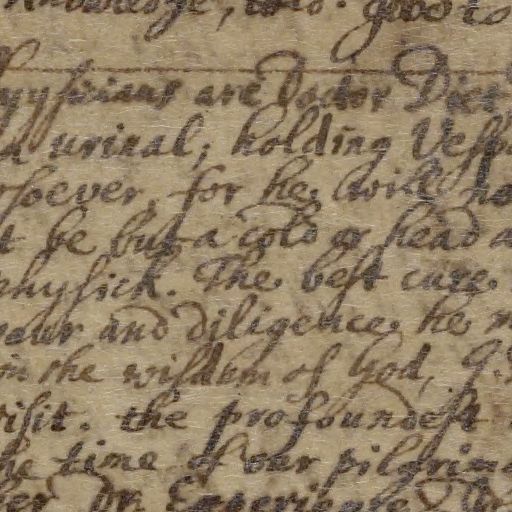 good to
hysicians are Doctor Diet
urinal; holding Vess
soever, for he will no
t be but a cold or head a
physick. The best cure
our and diligence he m
in the wisdom of God, G.
visit. the profoundest
he time of our pilgrim
er Dr. Experience